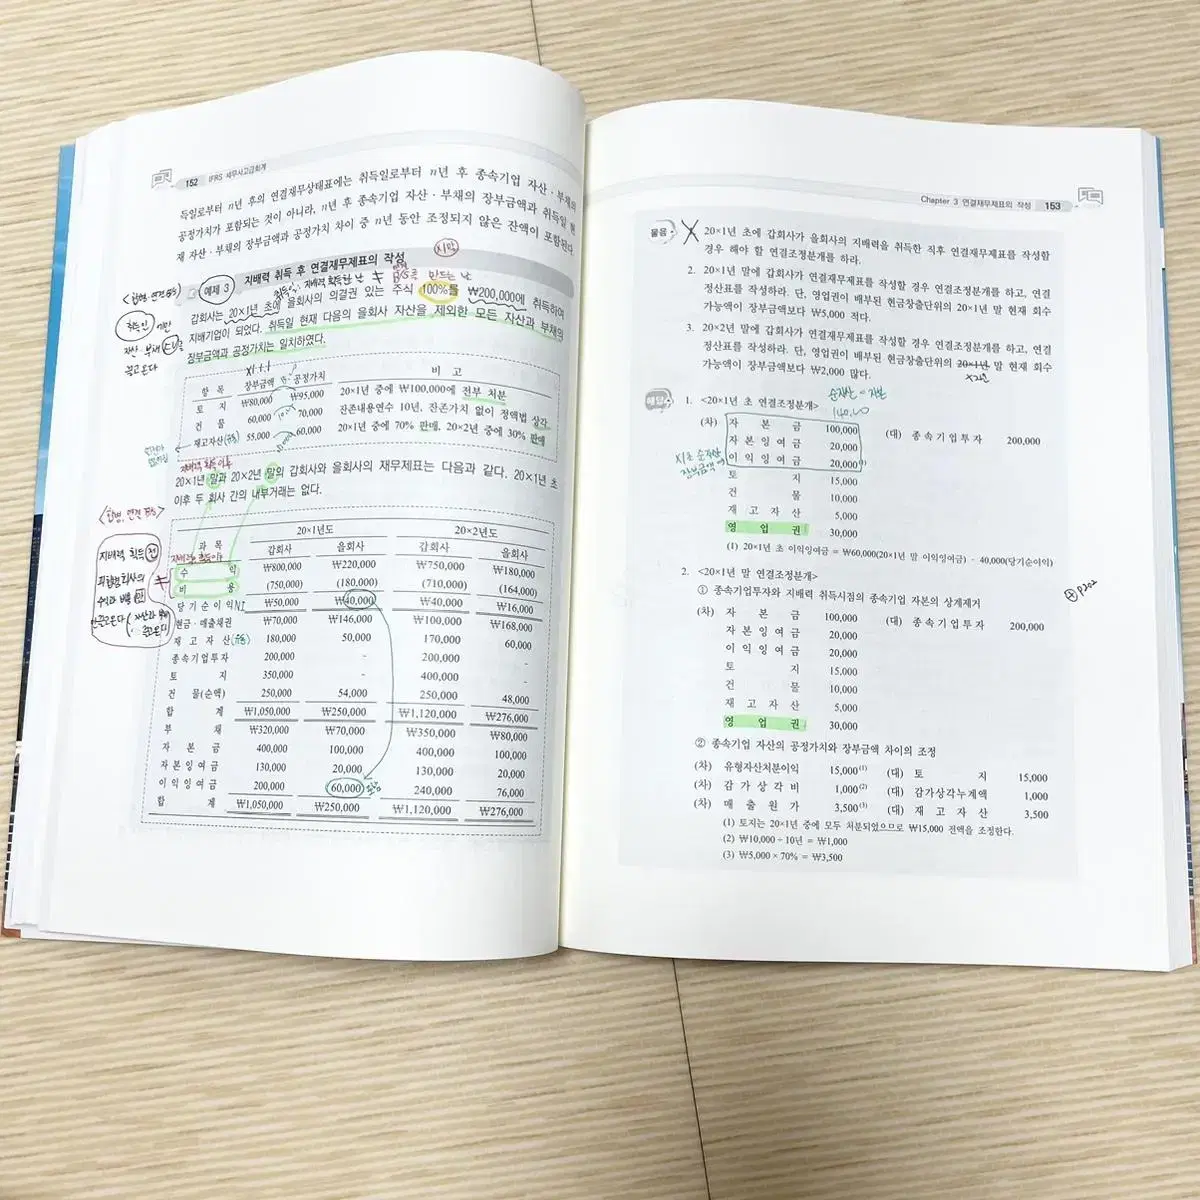 152 IFRS 재무사고급회계
득일로부터 n년 후의 연결재무상태표에는 취득일로부터 n년 후 종속기업 자산·부채의
공정가치가 포함되는 것이 아니라, n년 후 종속기업 자산·부채의 장부금액과 취득일 현
재 자산·부채의 장부금액과 공정가치 차이 중 n년 동안 조정되지 않은 잔액이 포함된다.
시말
예제 3 지배력 취득 후 연결재무제표의 작성
갑회사는 20×1년 초에 을회사의 의결권 있는 주식 100%를 ₩200,000에 취득하여
지배기업이 되었다. 취득일 현재 다음의 을회사 자산을 제외한 모든 자산과 부채의
장부금액과 공정가치는 일치하였다.
항 목 장부금액 공정가치 비 고
토 지 ₩80,000 ₩95,000 20×1년 중에 ₩100,000에 전부 처분
건 물 60,000 70,000 잔존내용연수 10년, 잔존가치 없이 정액법 상각
재고자산 55,000 60,000 20×1년 중에 70% 판매, 20×2년 중에 30% 판매
지배력 취득 이후
20×1년 말과 20×2년 말의 갑회사와 을회사의 재무제표는 다음과 같다. 20×1년 초
이후 두 회사 간의 내부거래는 없다.
20×1년도 20×2년도
과 목 갑회사 을회사 갑회사 을회사
수 익 ₩800,000 ₩220,000 ₩750,000 ₩180,000
비 용 (750,000) (180,000) (710,000) (164,000)
당기순이익 NI ₩50,000 ₩40,000 ₩40,000 ₩16,000
현금·매출채권 ₩70,000 ₩146,000 ₩100,000 ₩168,000
재 고 자 산 180,000 50,000 170,000 60,000
종속기업투자 200,000 - 200,000 -
토 지 350,000 - 400,000 -
건 물(순액) 250,000 54,000 250,000 48,000
합 계 ₩1,050,000 ₩250,000 ₩1,120,000 ₩276,000
부 채 ₩320,000 ₩70,000 ₩350,000 ₩80,000
자 본 금 400,000 100,000 400,000 100,000
자본잉여금 130,000 20,000 130,000 20,000
이익잉여금 200,000 60,000 240,000 76,000
합 계 ₩1,050,000 ₩250,000 ₩1,120,000 ₩276,000
Chapter 3 연결재무제표의 작성 153
물음 20×1년 초에 갑회사가 을회사의 지배력을 취득한 직후 연결재무제표를 작성할
경우 해야 할 연결조정분개를 하라.
2. 20×1년 말에 갑회사가 연결재무제표를 작성할 경우 연결조정분개를 하고, 연결
정산표를 작성하라. 단, 영업권이 배부된 현금창출단위의 20×1년 말 현재 회수
가능액이 장부금액보다 ₩5,000 적다.
3. 20×2년 말에 갑회사가 연결재무제표를 작성할 경우 연결조정분개를 하고, 연결
정산표를 작성하라. 단, 영업권이 배부된 현금창출단위의 20×1년 말 현재 회수
×2년
가능액이 장부금액보다 ₩2,000 많다.
해답 1. <20×1년 초 연결조정분개>
(차) 자 본 금 100,000 (대) 종속기업투자 200,000
자본잉여금 20,000
이익잉여금 20,000(1)
토 지 15,000
건 물 10,000
재 고 자 산 5,000
영 업 권 30,000
(1) 20×1년 초 이익잉여금 = ₩60,000(20×1년 말 이익잉여금) - 40,000(당기순이익)
2. <20×1년 말 연결조정분개>
① 종속기업투자와 지배력 취득시점의 종속기업 자본의 상계제거
(차) 자 본 금 100,000 (대) 종속기업투자 200,000
자본잉여금 20,000
이익잉여금 20,000
토 지 15,000
건 물 10,000
재 고 자 산 5,000
영 업 권 30,000
② 종속기업 자산의 공정가치와 장부금액 차이의 조정
(차) 유형자산처분이익 15,000(1) (대) 토 지 15,000
(차) 감 가 상 각 비 1,000(2) (대) 감가상각누계액 1,000
(차) 매 출 원 가 3,500(3) (대) 재 고 자 산 3,500
(1) 토지는 20×1년 중에 모두 처분되었으므로 ₩15,000 전액을 조정한다.
(2) ₩10,000 ÷ 10년 = ₩1,000
(3) ₩5,000 × 70% = ₩3,500